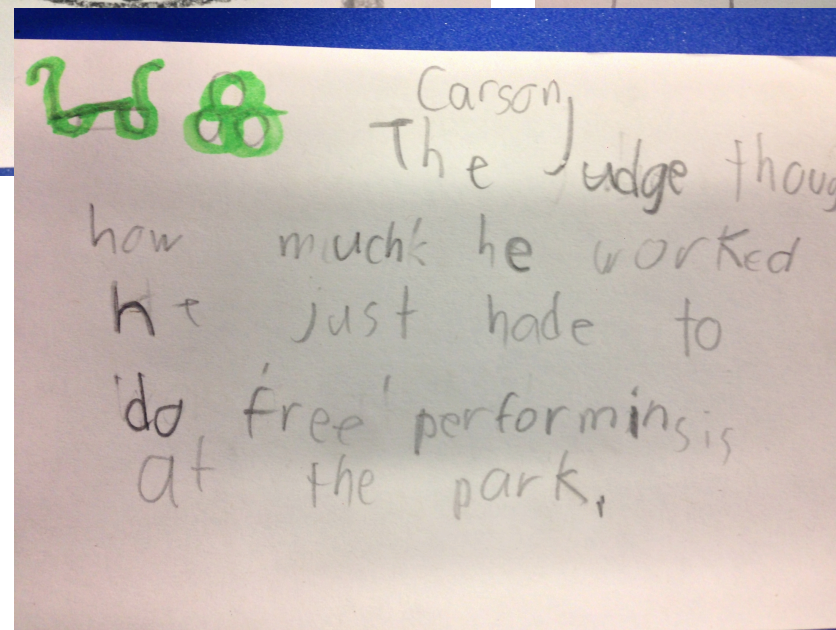 Carson
The Judge thoug
how much he worked
he just hade to
do free performinsis
at the park.